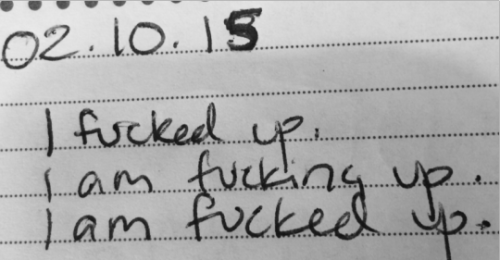 02.10.15
I fucked up.
I am fucking up.
I am fucked up.